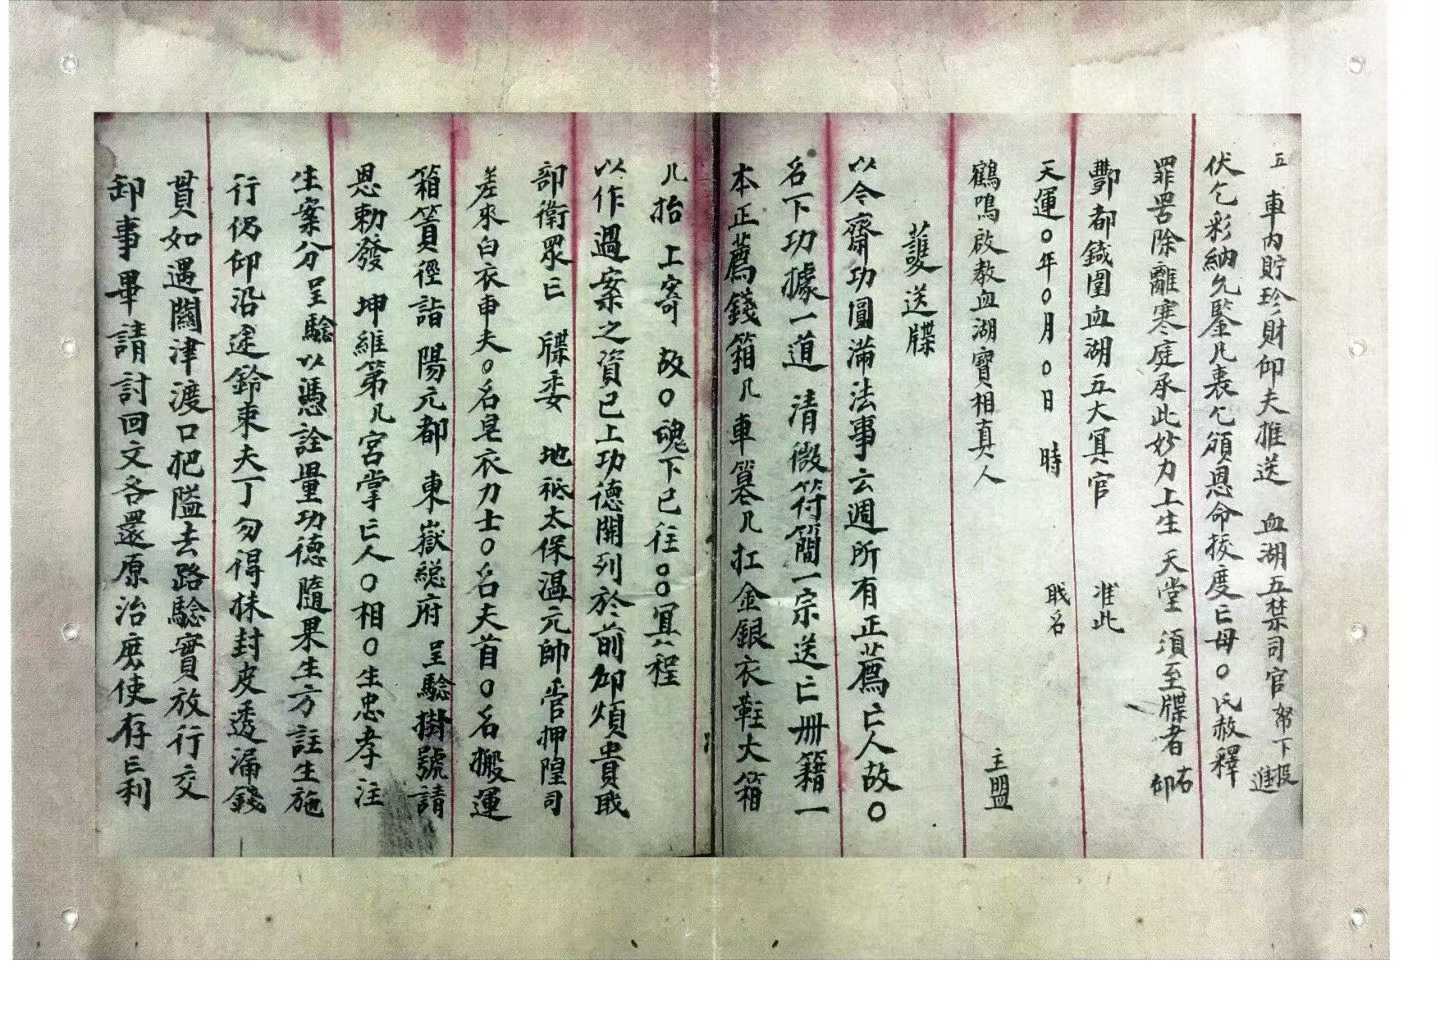 五 車內貯珍財仰夫推送 血湖五禁司官 帑下投進
伏乞彩納允鑒凡衷乞頒恩命拔度亡母〇氏赦釋
罪罟除離寒庭承此妙力上生 天堂 須至牒者 右仰
酆都鐡圍血湖五大冥官 准此
天運〇年〇月〇日 時 戢名
鶴鳴啟教血湖寶相真人 主盟
護送牒
以令齋功圓滿法事云週所有正薦亡人故〇
名下功據一道 清微符簡一宗送亡冊籍一
本正薦錢箱几車簒几扛金銀衣鞋大箱
几抬 上寄 故〇魂下已往〇〇冥程
以作過案之資已上功德開列於前卻煩貴戢
部衛眾亡 牒委 地祇太保温元帥 管押隍司
差來白衣申夫〇名皂衣力士〇名夫首〇名搬運
箱簣徑詣 陽元都 東嶽総府 呈驗掛號請
恩勅發 坤維第几宮掌亡人〇相〇生忠孝 注
生案分 呈驗以憑詮量功德隨果生方註生施
行仍仰沿途鈴束夫丁勿得抹封皮透漏錢
貫如遇關津渡口把隘去路驗實放行交
卸事畢請討回文各還原治庶使存亡利